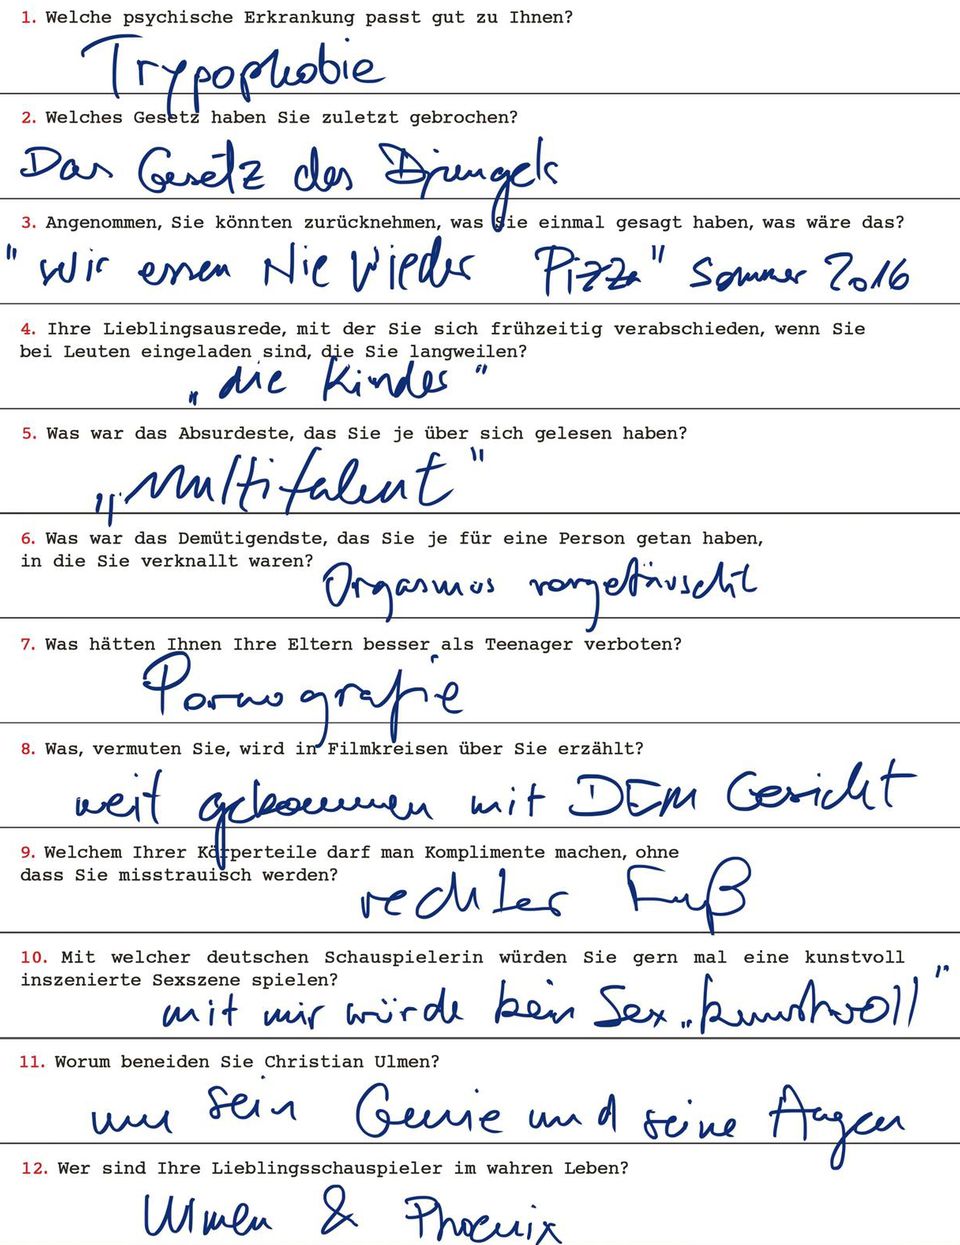 1. Welche psychische Erkrankung passt gut zu Ihnen?
Trypophobie
2. Welches Gesetz haben Sie zuletzt gebrochen?
Das Gesetz des Djungels
3. Angenommen, Sie könnten zurücknehmen, was Sie einmal gesagt haben, was wäre das?
"Wir essen Nie Wieder Pizza" Sommer 2016
4. Ihre Lieblingsausrede, mit der Sie sich frühzeitig verabschieden, wenn Sie
bei Leuten eingeladen sind, die Sie langweilen?
„die Kinder"
5. Was war das Absurdeste, das Sie je über sich gelesen haben?
„Multitalent"
6. Was war das Demütigendste, das Sie je für eine Person getan haben,
in die Sie verknallt waren?
Orgasmus vorgetäuscht
7. Was hätten Ihnen Ihre Eltern besser als Teenager verboten?
Pornografie
8. Was, vermuten Sie, wird in Filmkreisen über Sie erzählt?
weit gekommen mit DEM Gesicht
9. Welchem Ihrer Körperteile darf man Komplimente machen, ohne
dass Sie misstrauisch werden?
rechter Fuß
10. Mit welcher deutschen Schauspielerin würden Sie gern mal eine kunstvoll
inszenierte Sexszene spielen?
mit mir würde kein Sex „kunstvoll"
11. Worum beneiden Sie Christian Ulmen?
um sein Genie und seine Augen
12. Wer sind Ihre Lieblingsschauspieler im wahren Leben?
Ulmen & Phoenix